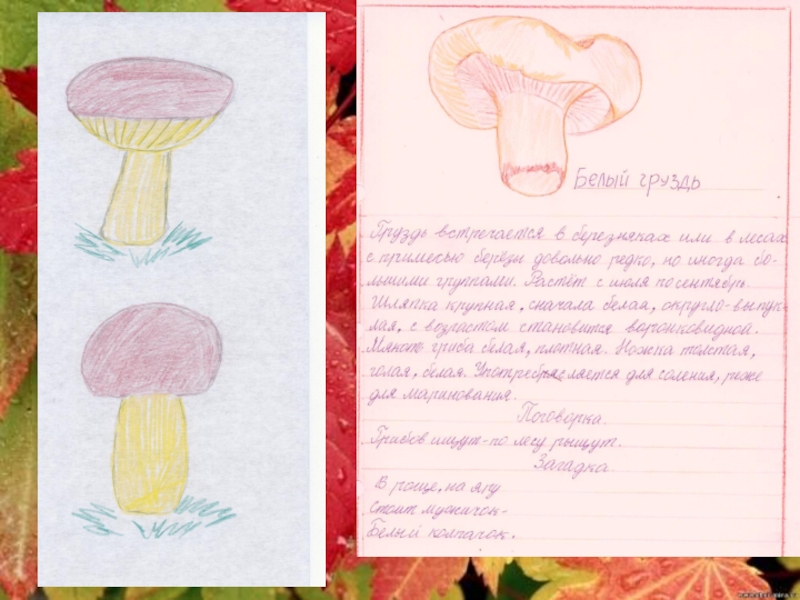 Белый груздь
Груздь встречается в березняках или в лесах
с примесью берёзы довольно редко, но иногда бо-
льшими группами. Растёт с июля по сентябрь.
Шляпка крупная, сначала белая, округло-выпук-
лая, с возрастом становится воронковидной.
Мякоть гриба белая, плотная. Ножка толстая,
голая, белая. Употребляется для соления, реже
для маринования.
Поговорка.
Грибов ищут-по лесу рыщут.
Загадка
В роще, на яру
Стоит мужичок-
Белый колпачок.